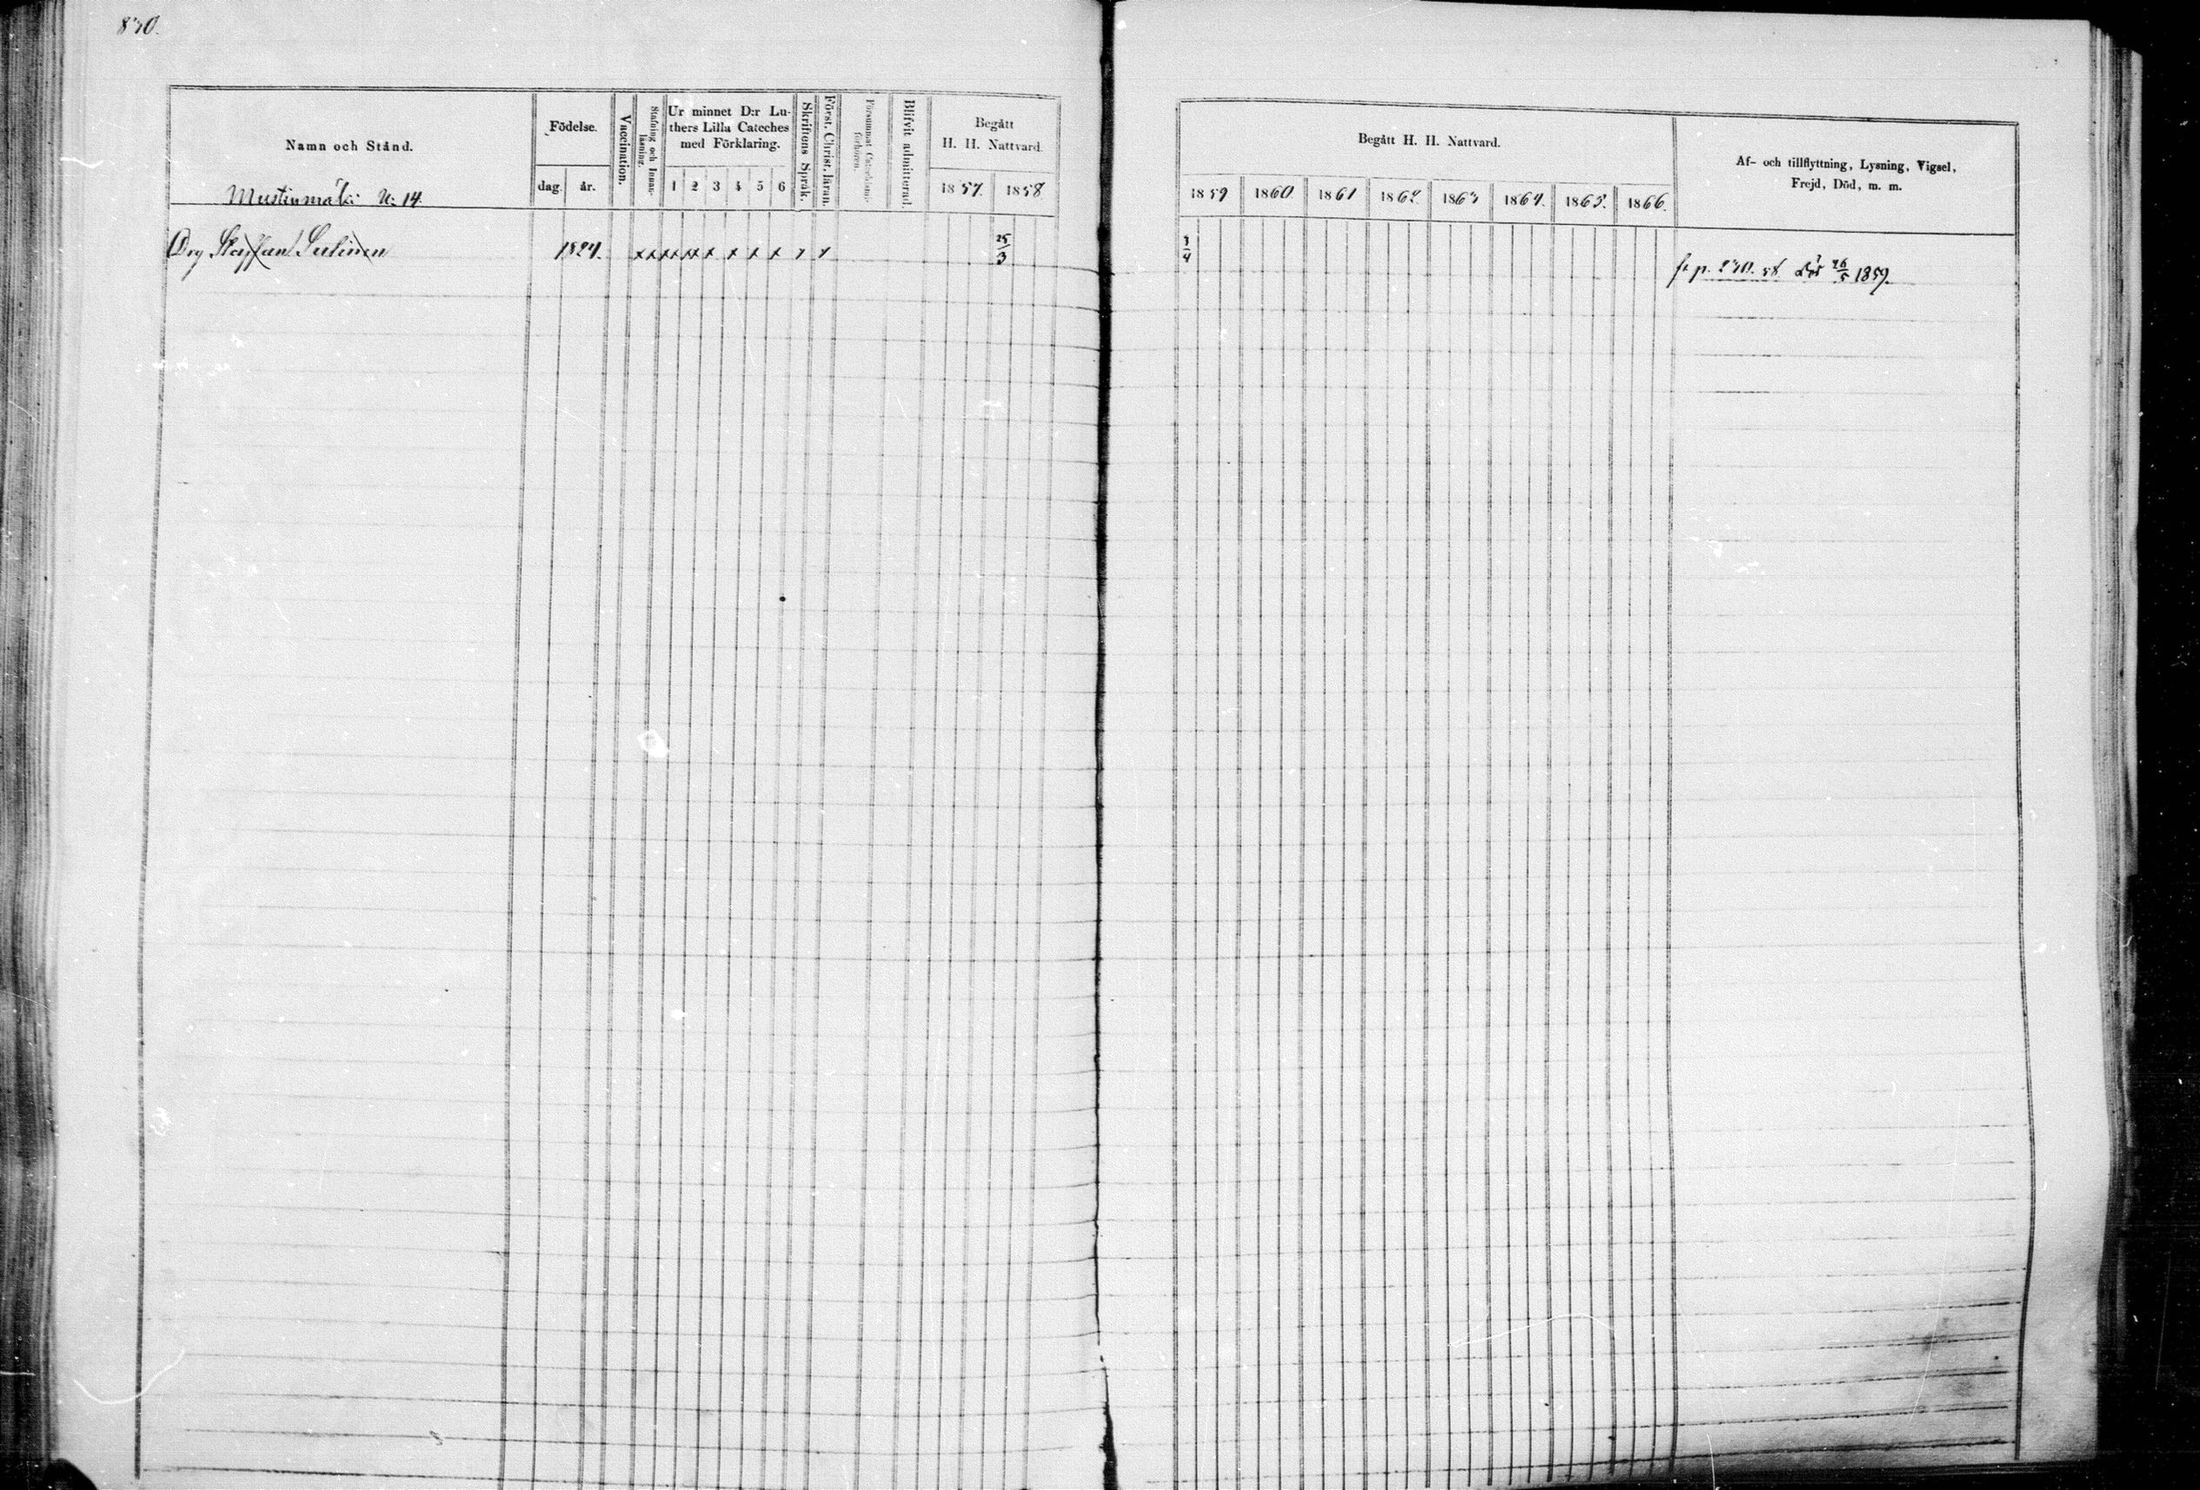 830.
Namn och Stånd.
Mustinmäki N: 14
Födelse.
dag. år.
Vaccination.
Stafning och Innanläsning.
Ur minnet D:r Luthers Lilla Cateches med Förklaring.
1 2 3 4 5 6
Skriftens Språk.
Först. Christ. läran.
Försummat Catechismiförhören.
Blifvit admitterad.
Begått
H. H. Nattvard.
1857. 1858
Begått H. H. Nattvard.
1859 1860 1861 1862 1863 1864. 1865. 1866.
Af- och tillflyttning, Lysning, Vigsel,
Frejd, Död, m. m.
Drg Staffan 1824. x x x x x x x x x x 25/3 3/4 fr p. 58. Död 26/5 1859.